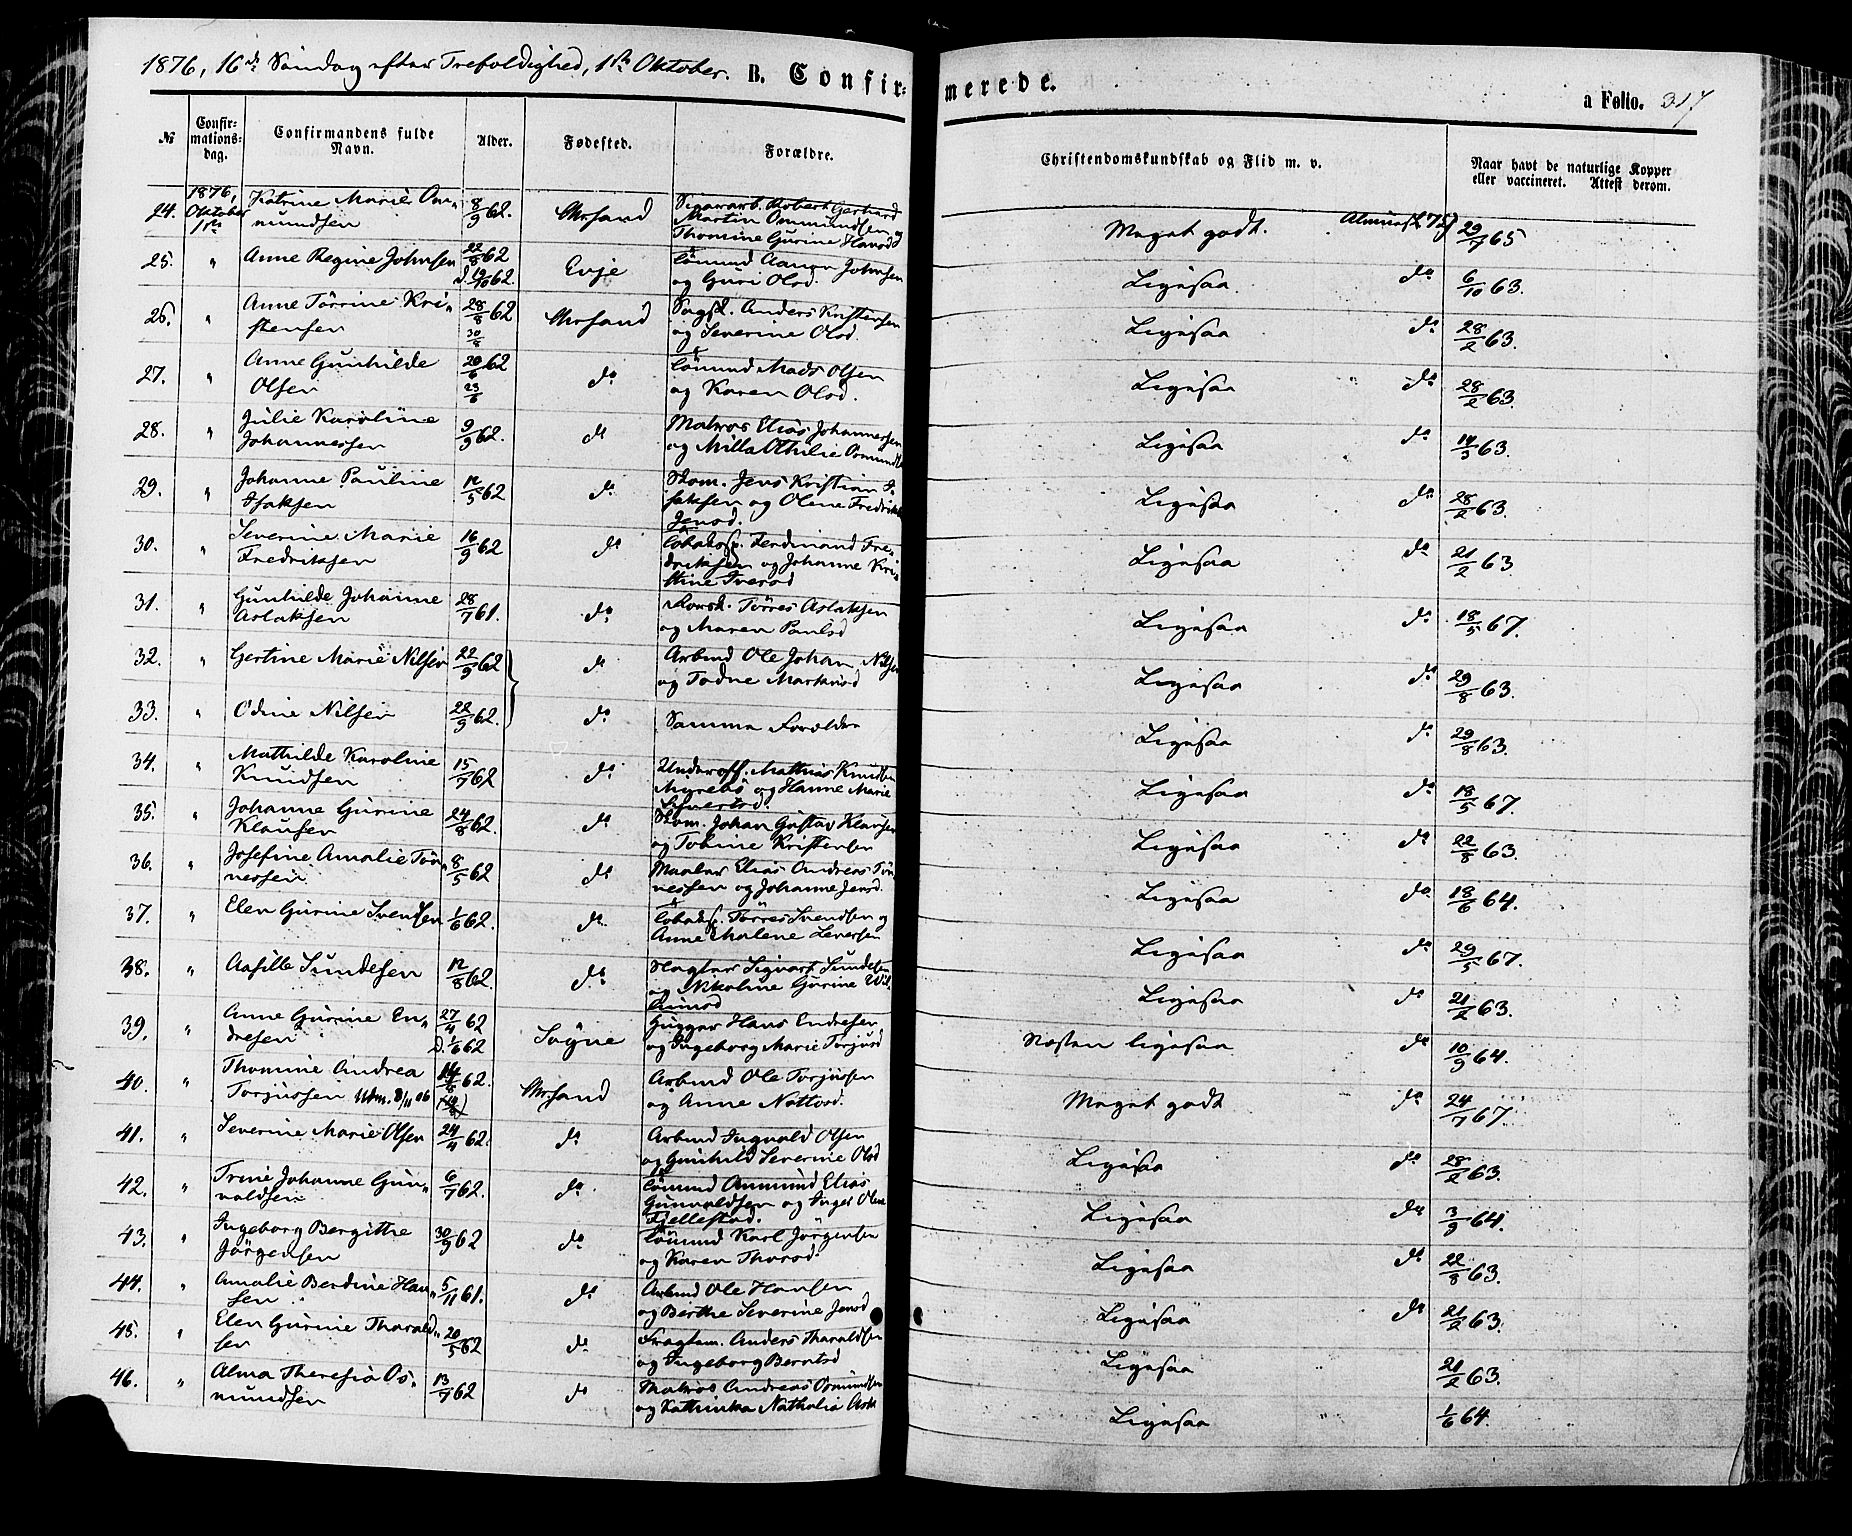 1876, 16de Søndag efter Trefoldighed, 1ste Oktober. B. Confir-
merede.
a Folio. 317
№
Confir-
mations-
dag.
Confirmandens fulde
Navn.
Alder.
Fødested.
Forældre.
Christendomskundskab og Flid m. v.
Naar havt de naturlige Kopper
eller vaccineret. Attest derom.
24. 1876, Oktober 1ste Katrine Marie Om-
mundsen 8/9 62. Chrsand
Sigararb. Robert Gerhard
Martin Ommundsen og
Thomine Gurine
Meget godt. 29/7 65
25. " Anne Regine Johnsen 22/8 62 Evje
Aanon Johnsen
og Guri Olsd.
Ligesaa do 6/10 63.
26. " Anne Tørrine Kri-
stensen 28/8 62 30/8 Chrsand
Anders Kristensen
og Severine Olsd.
Ligesaa do 28/2 63.
27. " Anne Gunhilde
Olsen 20/6 62 23/6 do
Sømand Mads Olsen
og Karen Olsd.
Ligesaa do 28/2 63.
28. " Julie Karoline
Johannessen 9/9 62. do
Matros Elias Johannessen
og Milla Othilie
Ligesaa do 14/5 63.
29. " Johanne Pauline
Isaksen 12/5 62 do
Jens Kristian I-
saksen og Olene Fredrikke
Jensd.
Ligesaa do 28/2 63.
30. " Severine Marie
Fredriksen 16/9 62 do
Ferdinand Fre-
driksen og Johanne Kri-
stine Iversd
Ligesaa do 21/2 63.
31. " Gunhilde Johanne
Aslaksen 28/7 61. do
Tørres Aslaksen
og Maren Paulsd
Ligesaa do 18/5 67.
32. " Gertine Marie Nilsen 22/9 62 do
Arbmd Ole Johan Nilsen
og Todne
Ligesaa do 29/8 63.
33. " Odine Nilsen 22/9 62. do
Samme Forældre
Ligesaa do 29/8 63.
34. " Mathilde Karoline
Knudsen 15/7 62 do
Underoff. Mathias Knudsen
Myrebø og Hanne Marie
Ligesaa do 18/5 67.
35. " Johanne Gurine
Klausen 24/8 62. do
Johan Gustav Klausen
og Tobine Kristensen
Ligesaa do 22/8 63.
36. " Josefine Amalie Tøn-
nessen 8/5 62 do
Maaler Elias Andreas Tøn-
nessen og Johanne Jensd.
Ligesaa do 18/6 64.
37. " Elen Gurine Svendsen 1/6 62. do
Tørres Svendsen og
Anne Malene
Ligesaa do 29/5 67.
38. " Aasille Sundesen 12/8 62. do
Slagter Sigvart Sundesen
og Nikoline Gurine
Ligesaa do 21/2 63.
39. " Anne Gurine En-
dresen 27/4 62 D. 1/6 62 Søgne
Hans Endresen
og Ingeborg Marie Torjusd
Næsten ligesaa do 10/9 64.
40. " Thomine Andrea
Torjussen Utm. 8/11 06 62. Chrsand
Arbmd Ole Torjussen
og Anne
Meget godt do 24/7 67.
41. " Severine Marie Olsen 24/4 62. do
Arbmd Ingvald Olsen
og Gunhild Severine Olsd
Ligesaa do 28/2 63.
42. " Trine Johanne Gun-
valdsen 6/7 62. do
Sømand Ommund Elias
Gunvaldsen og Inger Olene
Fjellestad.
Ligesaa do 3/9 64.
43. " Ingeborg Bergitthe
Jørgensen 30/9 62 do
Sømand Karl Jørgensen
og Karen Thorsd.
Ligesaa do 22/8 63.
44. " Amalie Berdine Han-
sen 5/11 61. do
Arbmd Ole Hansen
og Berthe Severine Jensd
Ligesaa do 21/2 63.
45. " Elen Gurine Tharald-
sen 20/5 62 do
Fragtem. Anders Tharaldsen
og Ingeborg Berntsd
Ligesaa 21/2 63.
46. " Alma Theresia Os-
mundsen 13/7 62 do
Matros Andreas Osmundsen
og Kathinka Nathalia
Ligesaa 1/6 64.